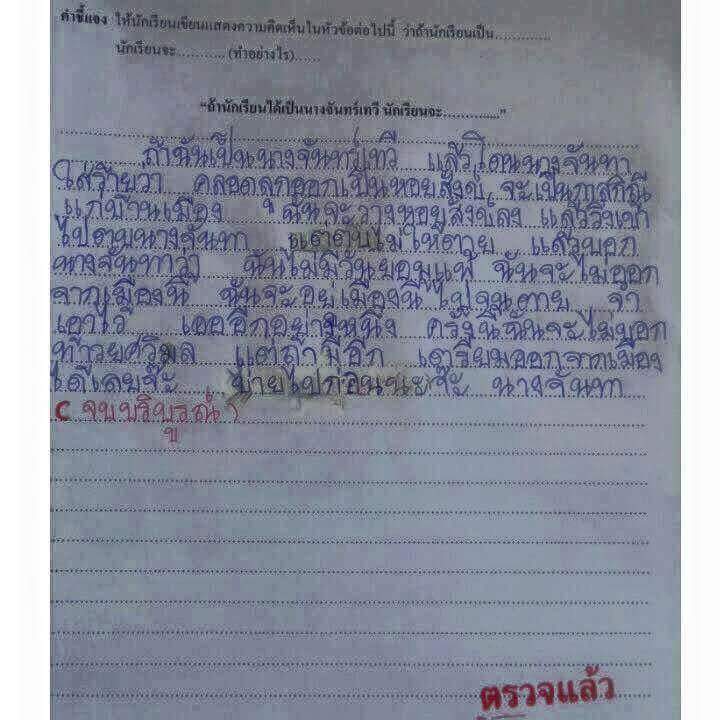 คำชี้แจง ให้นักเรียนเขียนแสดงความคิดเห็นในหัวข้อต่อไปนี้ ว่าถ้านักเรียนเป็น..............
นักเรียนจะ........... (ทำอย่างไร)......
"ถ้านักเรียนได้เป็นนางจันทร์เทวี นักเรียนจะ............."
ถ้าฉันเป็นนางจันทร์เทวี แล้วโดนนางจันทา
ใส่ร้ายว่า คลอดลูกออกเป็นหอยสังข์ จะเป็นกาลกิณี
แก่บ้านเมือง ฉันจะวางหอยสังข์ลง แล้ววิ่งเข้า
ไปตบนางจันทา แต่ตบไม่ให้ตาย แล้วบอก
นางจันทาว่า ฉันไม่มีวันยอมแพ้ ฉันจะไม่ออก
จากเมืองนี้ ฉันจะอยู่เมืองนี้ไปจนตาย จำ
เอาไว้ เออ อีกอย่างหนึ่ง ครั้งนี้ฉันจะไม่บอก
ท้าวยศวิมล แต่ถ้ามีอีก เตรียมออกจากเมือง
ได้เลยจ๊ะ บ๊ายไปก่อนนะจ๊ะ นางจันทา
( จบบริบูรณ์ )
ตรวจแล้ว